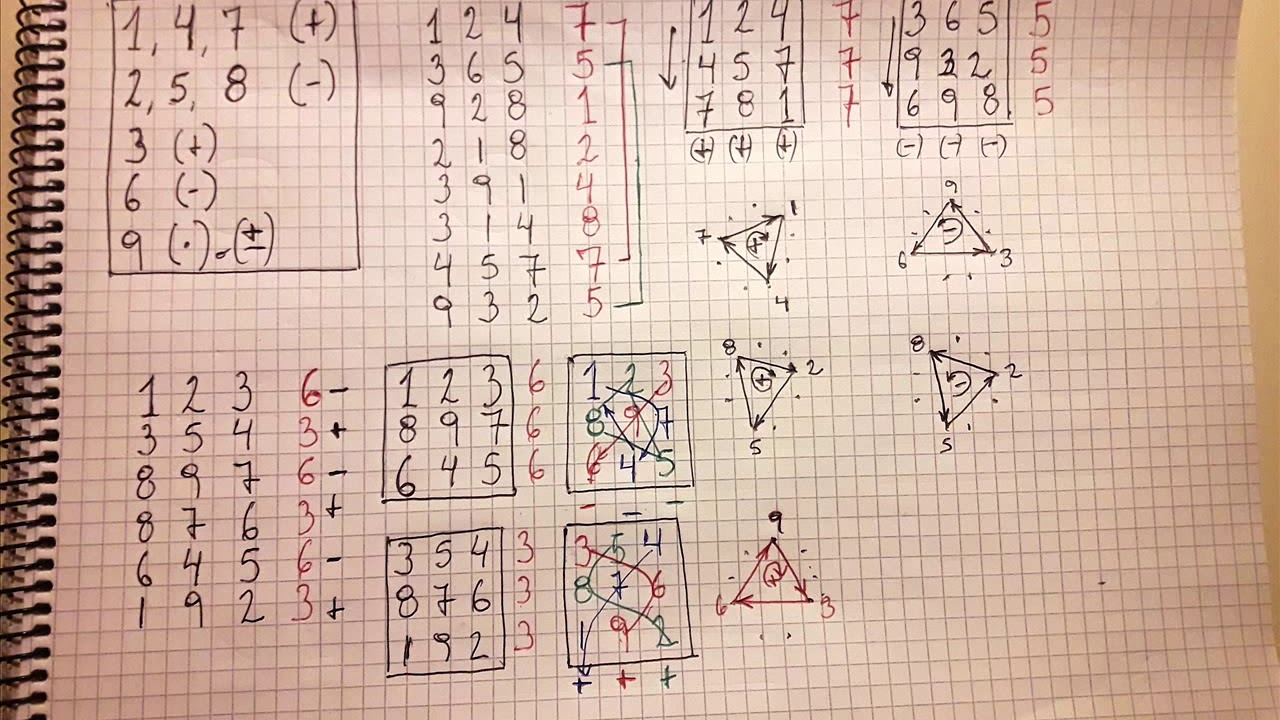 1, 4, 7 (+)
2, 5, 8 (-)
3 (+)
6 (-)
9 (·)-(±)
1 2 4 7
3 6 5 5
9 2 8 1
2 1 8 2
3 9 1 4
3 1 4 8
4 5 7 7
9 3 2 5
1 2 4 7
4 5 7 7
7 8 1 7
(+) (+) (+)
3 6 5 5
9 3 2 5
6 9 8 5
(-) (-) (-)
7 1 4 +
9 6 3 -
8 2 5 +
8 2 5 -
1 2 3 6 -
3 5 4 3 +
8 9 7 6 -
8 7 6 3 +
6 4 5 6 -
1 9 2 3 +
1 2 3 6
8 9 7 6
6 4 5 6
1 2 3
8 9 7
6 4 5
- - -
3 5 4 3
8 7 6 3
1 9 2 3
3 5 4
8 7 6
1 9 2
+ + +
9 6 3 +